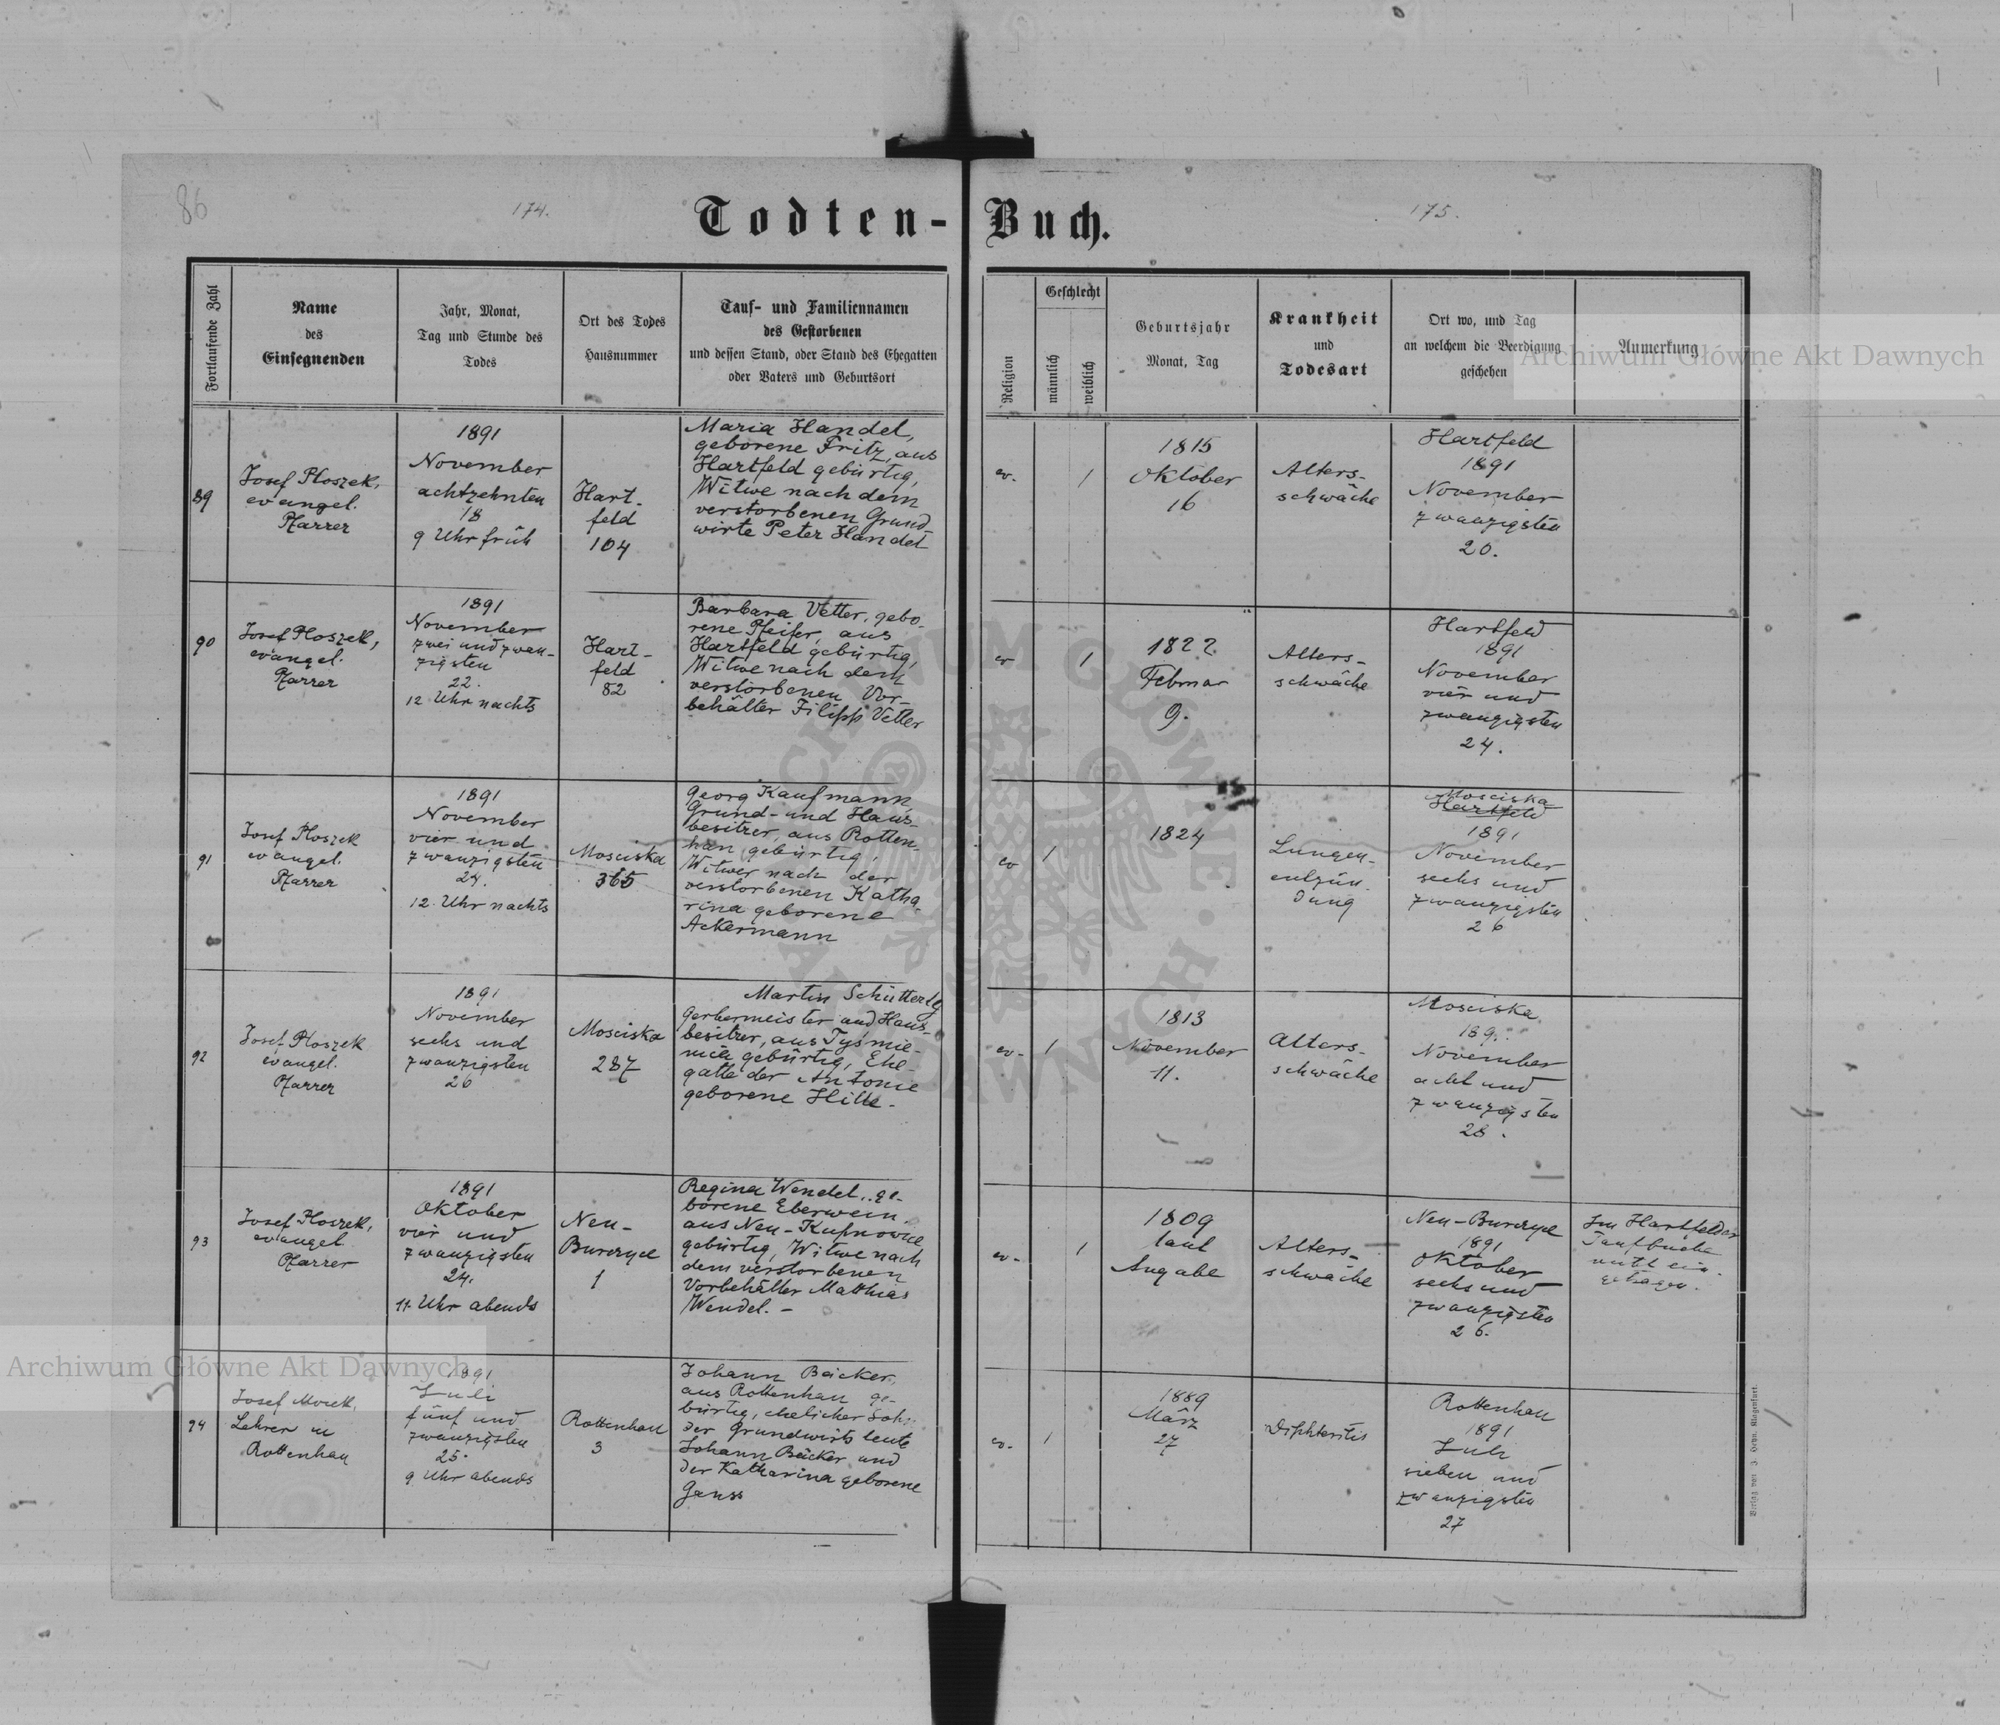 86
174.
Todten-Buch.
175.
Fortlaufende Zahl
Name
des
Einsegnenden
Jahr, Monat,
Tag und Stunde des
Todes
Ort des Todes
Hausnummer
Tauf- und Familiennamen
des Gestorbenen
und dessen Stand, oder Stand des Ehegatten
oder Vaters und Geburtsort
Religion
Geschlecht
männlich
weiblich
Geburtsjahr
Monat, Tag
Krankheit
und
Todesart
Ort wo, und Tag
an welchem die Beerdigung
geschehen
Anmerkung
Archiwum Główne Akt Dawnych
89
Josef Ploszek,
evangel.
Pfarrer
1891
November
achtzehnten
18
9 Uhr früh
Hart-
feld
104
Maria Handel,
geborene Fritz, aus
Hartfeld gebürtig,
Witwe nach dem
verstorbenen Grund-
wirte Peter Handel
ev.
1
1815
Oktober
16
Alters-
schwäche
Hartfeld
1891
November
zwanzigsten
20.
90
Josef Ploszek,
evangel.
Pfarrer
1891
November
zwei und zwan-
zigsten
22.
12 Uhr nachts
Hart-
feld
82
Barbara Vetter, gebo-
rene Pfeifer, aus
Hartfeld gebürtig,
Witwe nach dem
verstorbenen Vor-
behälter Filipp Vetter
ev
1
1822
Februar
9.
Alters-
schwäche
Hartfeld
1891
November
vier und
zwanzigsten
24.
91
Josef Ploszek
evangel.
Pfarrer
1891
November
vier und
zwanzigsten
24.
12 Uhr nachts
Mosciska
365
Georg Kaufmann
Grund- und Haus-
besitzer, aus Rotten-
han gebürtig,
Witwer nach der
verstorbenen Katha-
rina geborene
Ackermann
ev
1
1824
Lungen-
entzün-
dung
Mosciska
Hartfeld
1891
November
sechs und
zwanzigsten
26
92
Josef Ploszek
evangel.
Pfarrer
1891
November
sechs und
zwanzigsten
26
Mosciska
287
Martin
Gerbermeister und Haus-
besitzer, aus Tyśmie-
nica gebürtig, Ehe-
gatte der Antonie
geborene Hille.
ev.
1
1813
November
11.
Alters-
schwäche
Mosciska
189.
November
acht und
zwanzigsten
28.
93
Josef Ploszek,
evangel.
Pfarrer
1891
Oktober
vier und
zwanzigsten
24.
11 Uhr abends
Neu-
Burczyce
1
Regina Wendel, ge-
borene Eberwein,
aus Neu-Kupnowice
gebürtig, Witwe nach
dem verstorbenen
Vorbehälter Matthias
Wendel.-
ev.
1
1809
laut
Angabe
Alters-
schwäche
Neu-Burczyce
1891
Oktober
sechs und
zwanzigsten
26.
Im Hartfelder
Taufbuche
nicht ein-
getragen.
94
Josef
Lehrer in
Rottenhan
1891
Juli
fünf und
zwanzigsten
25.
9 Uhr abends
Rottenhan
3
Johann Bäcker,
aus Rottenhan ge-
bürtig, ehelicher Sohn
der Grundwirtsleute
Johann Bäcker und
der Katharina geborene
Ganss
ev.
1
1889
März
27
Diphteritis
Rottenhan
1891
Juli
sieben und
zwanzigsten
27
Archiwum Główne Akt Dawnych